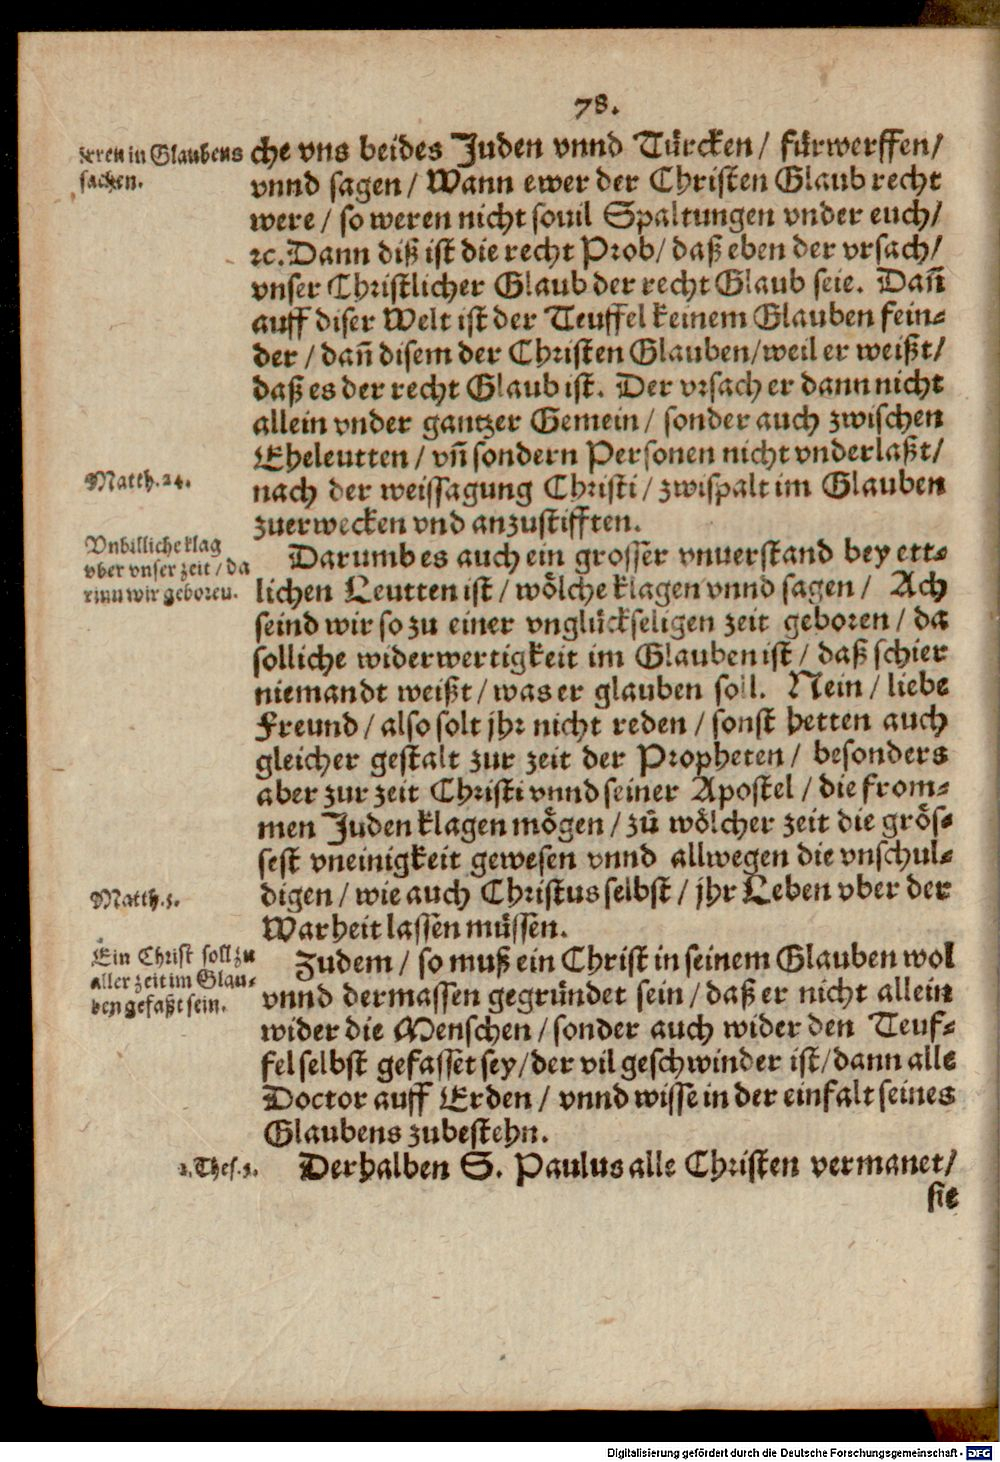 78.
irren in Glaubens
sachen.
che vns beides Juden vnnd Türcken / fürwerffen /
vnnd sagen / Wann ewer der Christen Glaub recht
were / so weren nicht souil Spaltungen vnder euch /
ꝛc. Dann diß ist die recht Prob / daß eben der vrsach /
vnser Christlicher Glaub der recht Glaub seie. Dañ
auff diser Welt ist der Teuffel keinem Glauben fein-
der / dañ disem der Christen Glauben / weil er weißt /
daß es der recht Glaub ist. Der vrsach er dann nicht
allein vnder gantzer Gemein / sonder auch zwischen
Eheleutten / vñ sondern Personen nicht vnderlaßt /
Matth. 24.
nach der weissagung Christi / zwispalt im Glauben
zuerwecken vnd anzustifften.
Vnbilliche klag
vber vnser zeit / da
rinn wir geboren.
Darumb es auch ein grosser vnuerstand bey ett-
lichen Leutten ist / wölche klagen vnnd sagen / Ach
seind wir so zu einer vnglückseligen zeit geboren / da
solliche widerwertigkeit im Glauben ist / daß schier
niemandt weißt / was er glauben soll. Nein / liebe
Freund / also solt jhr nicht reden / sonst hetten auch
gleicher gestalt zur zeit der Propheten / besonders
aber zur zeit Christi vnnd seiner Apostel / die from-
men Juden klagen mögen / zů wölcher zeit die grös-
sest vneinigkeit gewesen vnnd allwegen die vnschul-
Matth. 5.
digen / wie auch Christus selbst / jhr Leben vber der
Warheit lassen müssen.
Ein Christ soll zu
aller zeit im Glau-
ben gefaßt sein.
Zudem / so muß ein Christ in seinem Glauben wol
vnnd dermassen gegründet sein / daß er nicht allein
wider die Menschen / sonder auch wider den Teuf-
fel selbst gefasset sey / der vil geschwinder ist / dann alle
Doctor auff Erden / vnnd wisse in der einfalt seines
Glaubens zubestehn.
Thes. 5.
Derhalben S. Paulus alle Christen vermanet /
sie
Digitalisierung gefördert durch die Deutsche Forschungsgemeinschaft - DFG